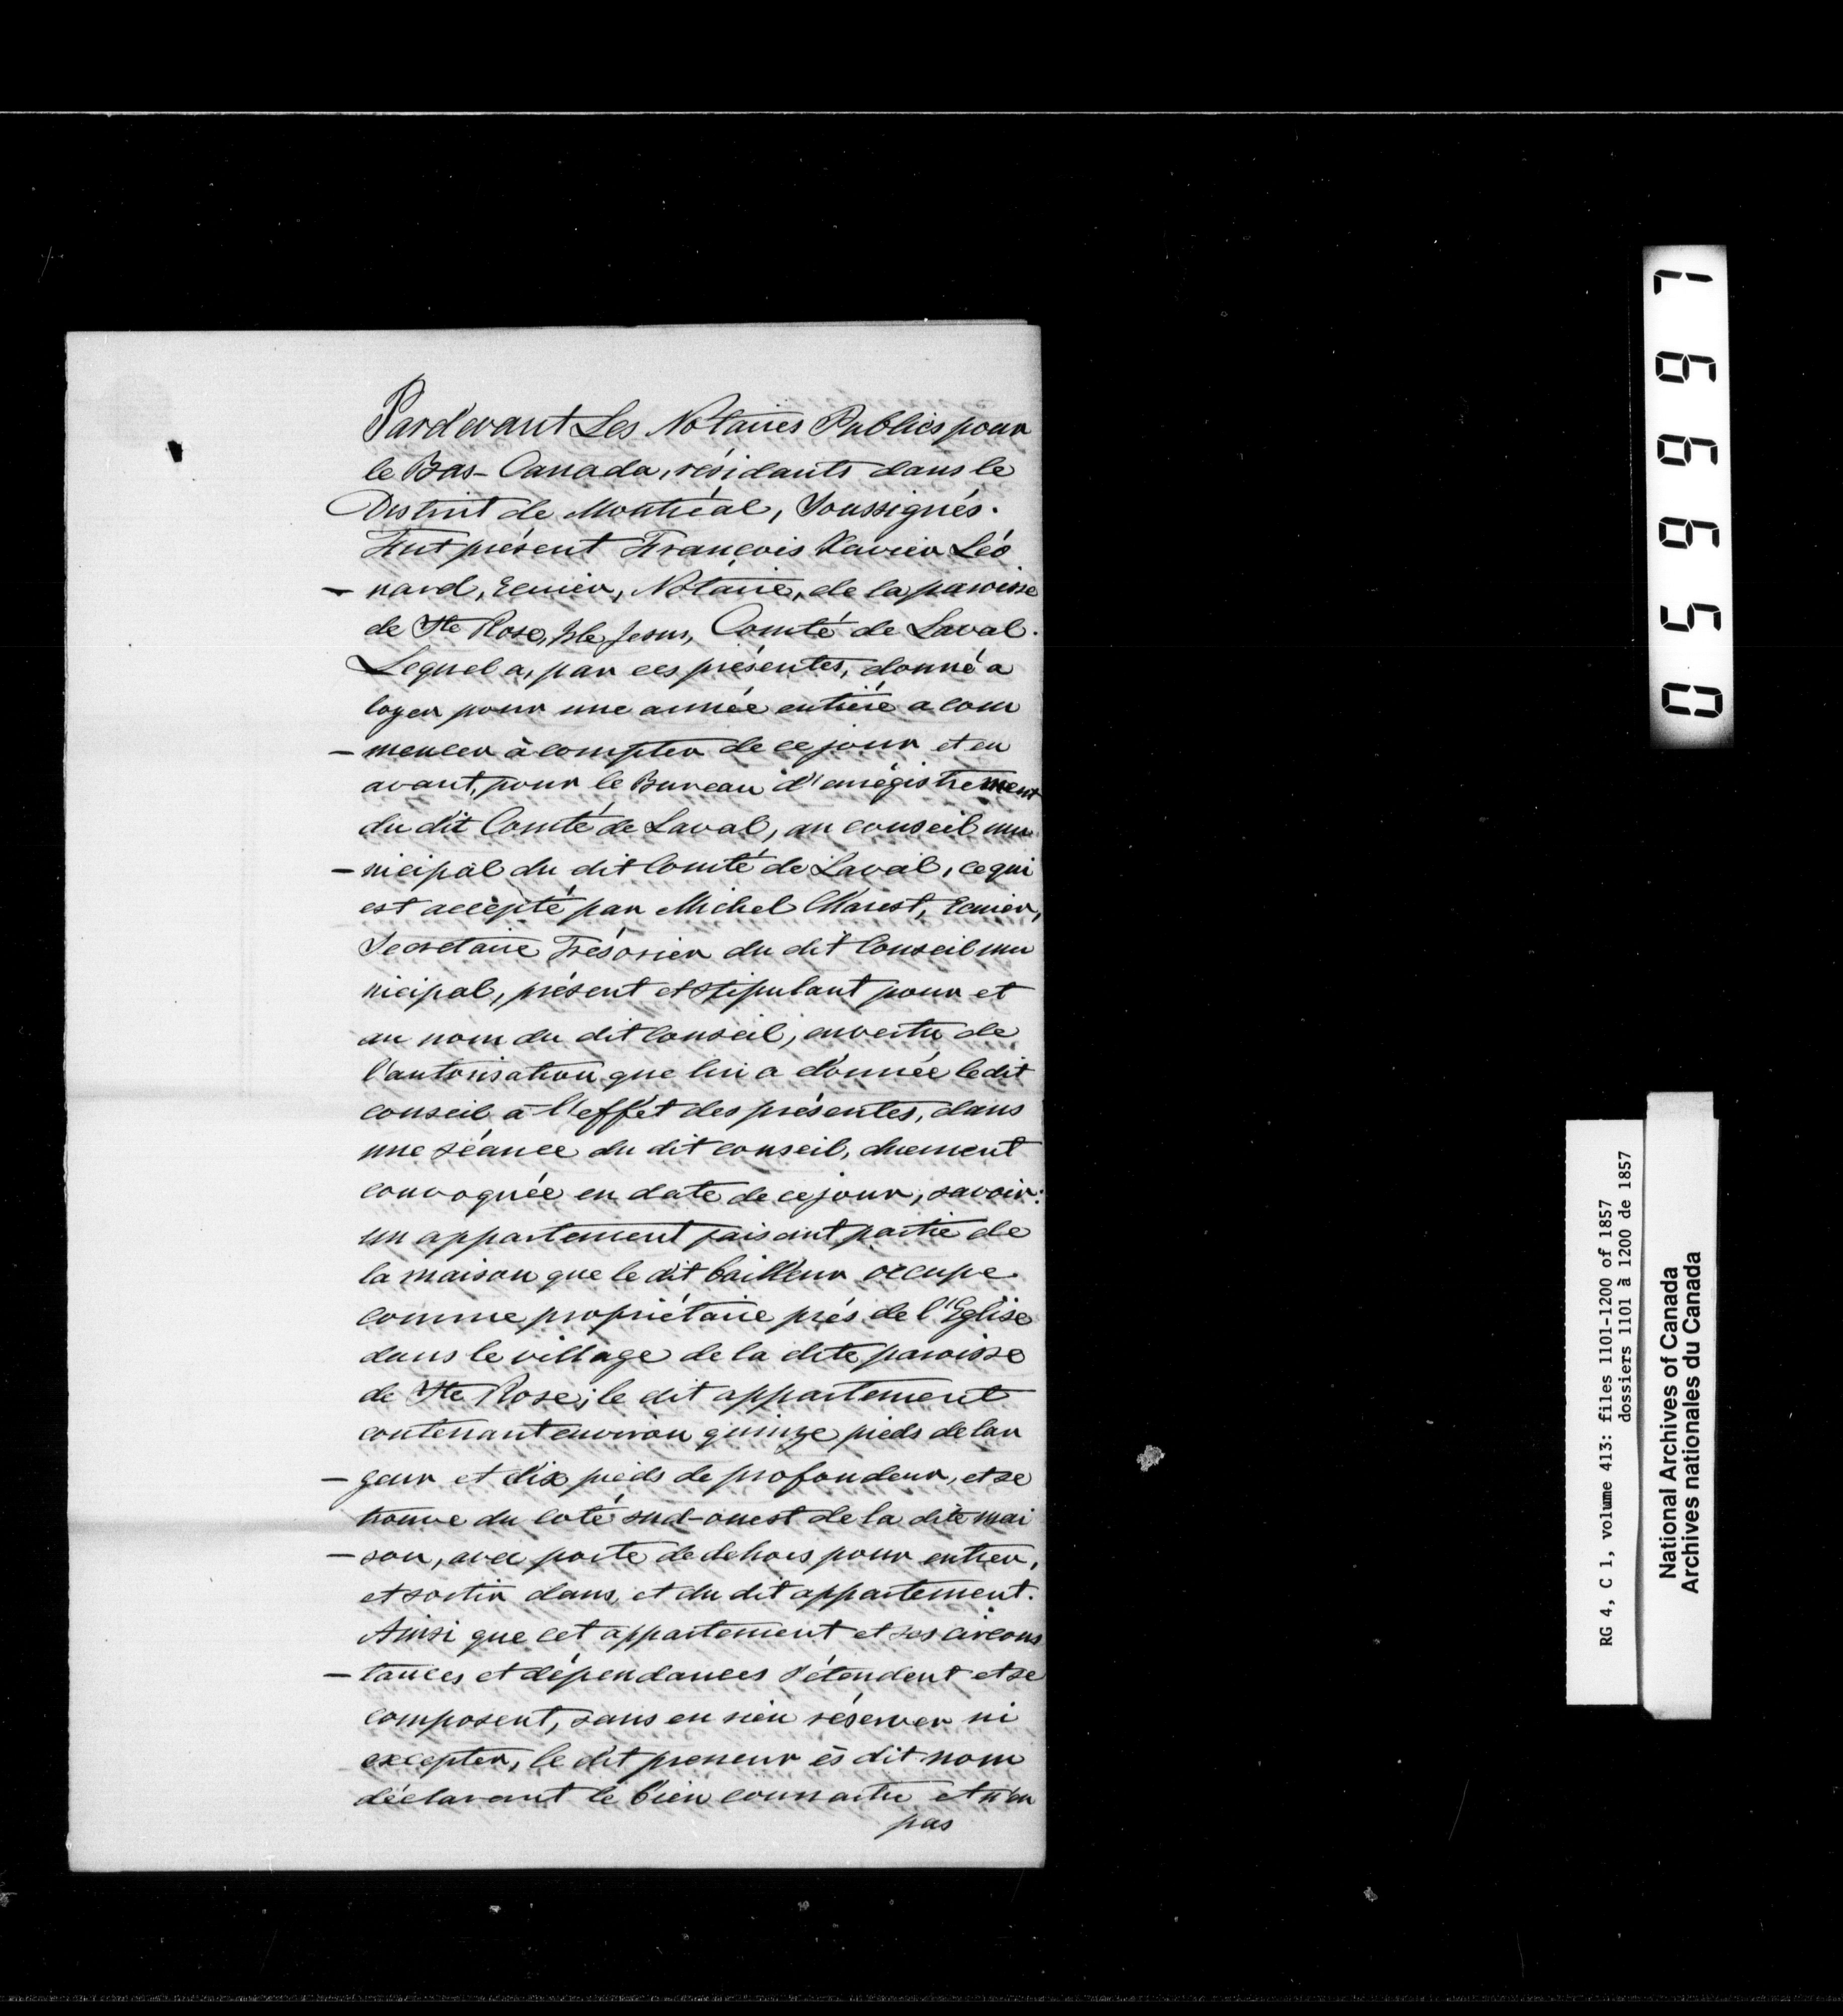 Pardevant Les Notaires Publics pour
le Bas-Canada, résidants dans le
District de Montréal, Soussignés.
Fut présent François Xavier Léo
— nard, Ecuier, Notaire, de la paroisse
de Ste Rose, Isle Jesus, Comté de Laval.
Lequel a, par ces présentes, donné a
loyer pour une année entière a com
— mencer à compter de ce jour et en
avant, pour le Bureau d'enrégistrement
du dit Comté de Laval, au conseil mu
— nicipal du dit Comté de Laval, ce qui
est accépté par Michel Charest, Ecuier,
Secretaire Trésorier du dit Conseil mu
nicipal, présent et stipulant pour et
au nom du dit Conseil, en vertu de
l'autorisation que lui a donnée le dit
conseil à l'effét des présentes, dans
une séance du dit conseil, duement
convoquée en date de ce jour, savoir:
un appartement faisant partie de
la maison que le dit bailleur occupe
comme propriétaire près de l'Eglise
dans le village de la dite paroisse
de Ste Rose; le dit appartement
contenant environ quinze pieds de lar
— geur et dix pieds de profondeur, et se
trouve du coté sud-ouest de la dite mai
— son, avec porte de dehors pour entrer,
et sortir dans, et du dit appartement.
Ainsi que cet appartement et ses circons
— tances et dépendances s'étendent et se
composent, sans en rien réserver ni
excepter, le dit preneur ès dit nom
déclarant le bien connaitre et n'en
pas
056661
RG 4, C 1, volume 413: files 1101-1200 of 1857
dossiers 1101 à 1200 de 1857
National Archives of Canada
Archives nationales du Canada